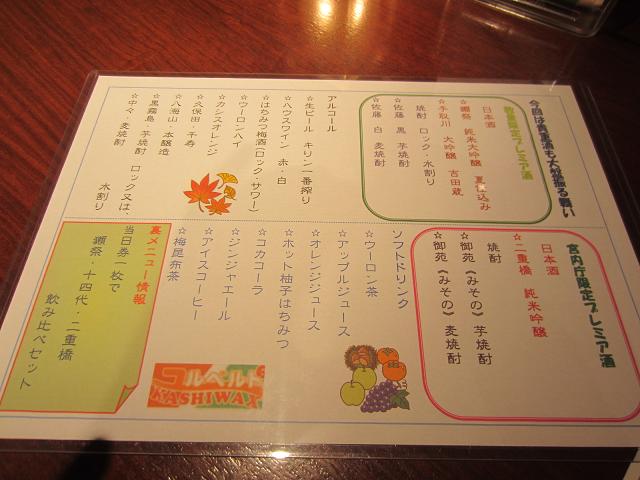 今回は貴重酒も大盤振る舞い
数量限定プレミア酒
日本酒
☆獺祭 純米大吟醸 夏仕込み
☆手取川 大吟醸 吉田蔵
焼酎 ロック・水割り
☆佐藤 黒 芋焼酎
☆佐藤 白 麦焼酎
アルコール
☆生ビール キリン一番搾り
☆ハウスワイン 赤・白
☆はちみつ梅酒(ロック・サワー)
☆ウーロンハイ
☆カシスオレンジ
☆久保田・千寿
☆八海山・本醸造
☆黒霧島 芋焼酎 ロック又は
☆中々・麦焼酎 水割り
宮内庁限定プレミア酒
日本酒
☆二重橋 純米吟醸
焼酎
☆御苑(みその)芋焼酎
☆御苑(みその)麦焼酎
ソフトドリンク
☆ウーロン茶
☆アップルジュース
☆オレンジジュース
☆ホット柚子はちみつ
☆コカコーラ
☆ジンジャエール
☆アイスコーヒー
☆梅昆布茶
裏メニュー情報
当日券一枚で
獺祭・十四代・二重橋
飲み比べセット
コルベールド
KASHIWAX